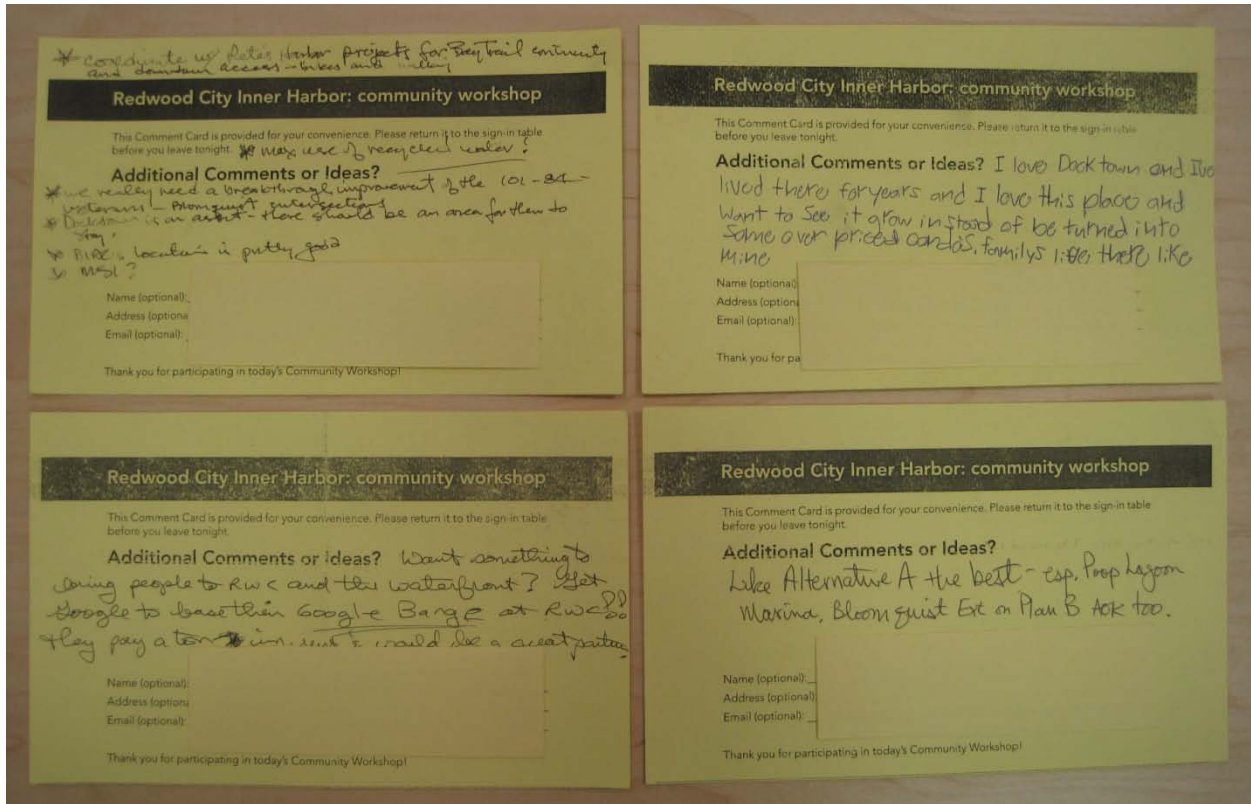 * coordinate w/ Pete's Harbor projects for Bay Trail continuity
and downtown access - bikes and
Redwood City Inner Harbor: community workshop
This Comment Card is provided for your convenience. Please return it to the sign-in table
before you leave tonight. * max use of recycled water?
Additional Comments or Ideas?
* we really need a breakthrough improvement of the 101-84-
Veterans - Blomquist intersections
* Docktown is an asset - there should be an area for them to
stay.
* location is pretty good
* MSI?
Name (optional):
Address (optiona
Email (optional):
Thank you for participating in today's Community Workshop!
Redwood City Inner Harbor: community workshop
This Comment Card is provided for your convenience. Please return it to the sign-in table
before you leave tonight.
Additional Comments or Ideas? I love Dock town and I've
lived there for years and I love this place and
Want to See it grow instead of be turned into
Some over priced condos. familys live there like
mine
Name (optional):
Address (option
Email (optional):
Thank you for pa
Redwood City Inner Harbor: community workshop
This Comment Card is provided for your convenience. Please return it to the sign-in table
before you leave tonight.
Additional Comments or Ideas? Want something to
bring people to RWC and the waterfront? Get
Google to base their Google Barge at RWC!!
they pay a ton in rent & would be a great partner
Name (optional):
Address (option
Email (optional):
Thank you for participating in today's Community Workshop!
Redwood City Inner Harbor: community workshop
This Comment Card is provided for your convenience. Please return it to the sign-in table
before you leave tonight.
Additional Comments or Ideas?
Like Alternative A the best - esp. Poop Lagoon
Marina, Bloomquist Ext on Plan B AOK too.
Name (optional):
Address (optional)
Email (optional):
Thank you for participating in today's Community Workshop!